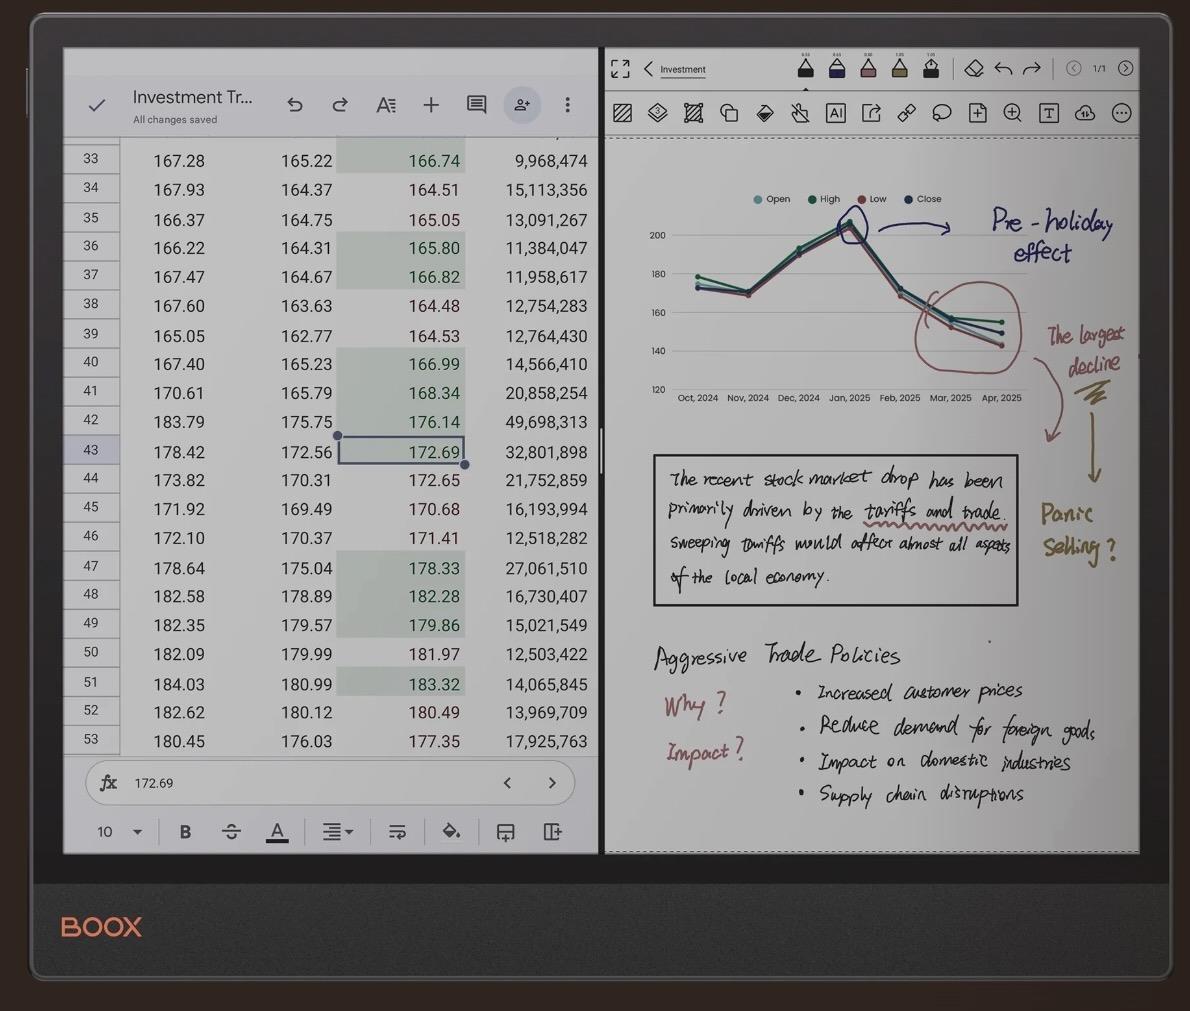 Investment Tr...
All changes saved
33 167.28 165.22 166.74 9,968,474
34 167.93 164.37 164.51 15,113,356
35 166.37 164.75 165.05 13,091,267
36 166.22 164.31 165.80 11,384,047
37 167.47 164.67 166.82 11,958,617
38 167.60 163.63 164.48 12,754,283
39 165.05 162.77 164.53 12,764,430
40 167.40 165.23 166.99 14,566,410
41 170.61 165.79 168.34 20,858,254
42 183.79 175.75 176.14 49,698,313
43 178.42 172.56 172.69 32,801,898
44 173.82 170.31 172.65 21,752,859
45 171.92 169.49 170.68 16,193,994
46 172.10 170.37 171.41 12,518,282
47 178.64 175.04 178.33 27,061,510
48 182.58 178.89 182.28 16,730,407
49 182.35 179.57 179.86 15,021,549
50 182.09 179.99 181.97 12,503,422
51 184.03 180.99 183.32 14,065,845
52 182.62 180.12 180.49 13,969,709
53 180.45 176.03 177.35 17,925,763
fx 172.69
10 B S A
Investment
1/1
AI T
Open High Low Close
200
180
160
140
120
Oct, 2024 Nov, 2024 Dec, 2024 Jan, 2025 Feb, 2025 Mar, 2025 Apr, 2025
Pre-holiday
effect
The largest
decline
Panic
Selling?
The recent stock market drop has been
primarily driven by the tariffs and trade.
sweeping tariffs would affect almost all aspects
of the local economy.
Aggressive Trade Policies
Why?
Impact?
• Increased customer prices
• Reduce demand for foreign goods
• Impact on domestic industries
• Supply chain disruptions
BOOX